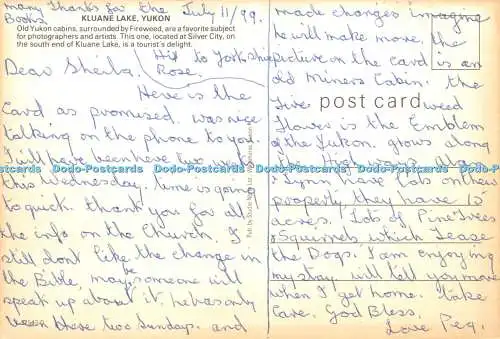 many Thanks for the July 11/99.
Books
KLUANE LAKE, YUKON
Old Yukon cabins, surrounded by Fireweed, are a favorite subject
for photographers and artists. This one, located at Silver City, on
the south end of Kluane Lake, is a tourist's delight.
Dear Sheila. Hit to Yorkshire
Rose.
Here is the
Card as promised. was nice
talking on the phone to you
I will have been here two
this Wednesday. time is going
to quick. thank you for all
the info on the Church. I
still dont like the change in
the Bible, maybe someone will
speak up about it. he has only
been there two Sundays. and
made changes imagine
he will make more. the
picture on the card is an
old Miners Cabin. the
Fire weed
post card
flower is the Emblem
of the Yukon. grows along
the High ways.
& Lynn have lots on their
property, they have 15
acres. Lots of Pine Trees
& Squirrels which Tease
the Dogs. I am enjoying
my stay. will tell you more
when I get home. Take
Care. God Bless.
Love Peg.
Dodo-Postcards Dodo-Postcards Dodo-Postcards Dodo-Postcards